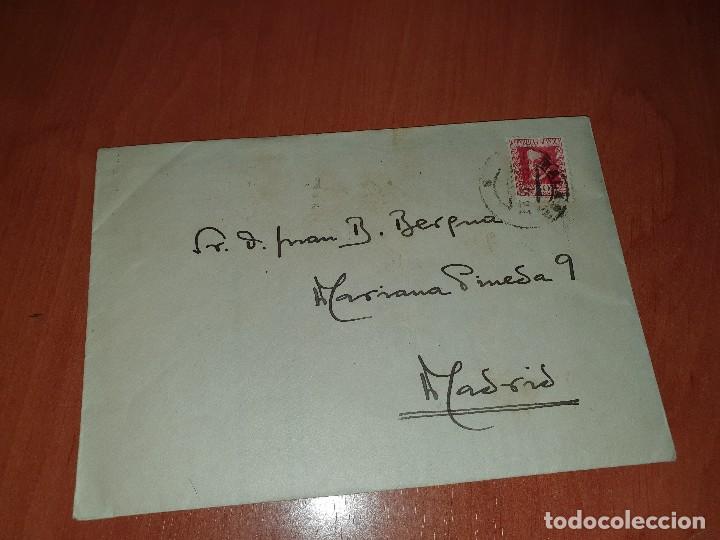 Sr. D. Juan B. Bergua
Mariana Pineda 9
Madrid
todocoleccion.net